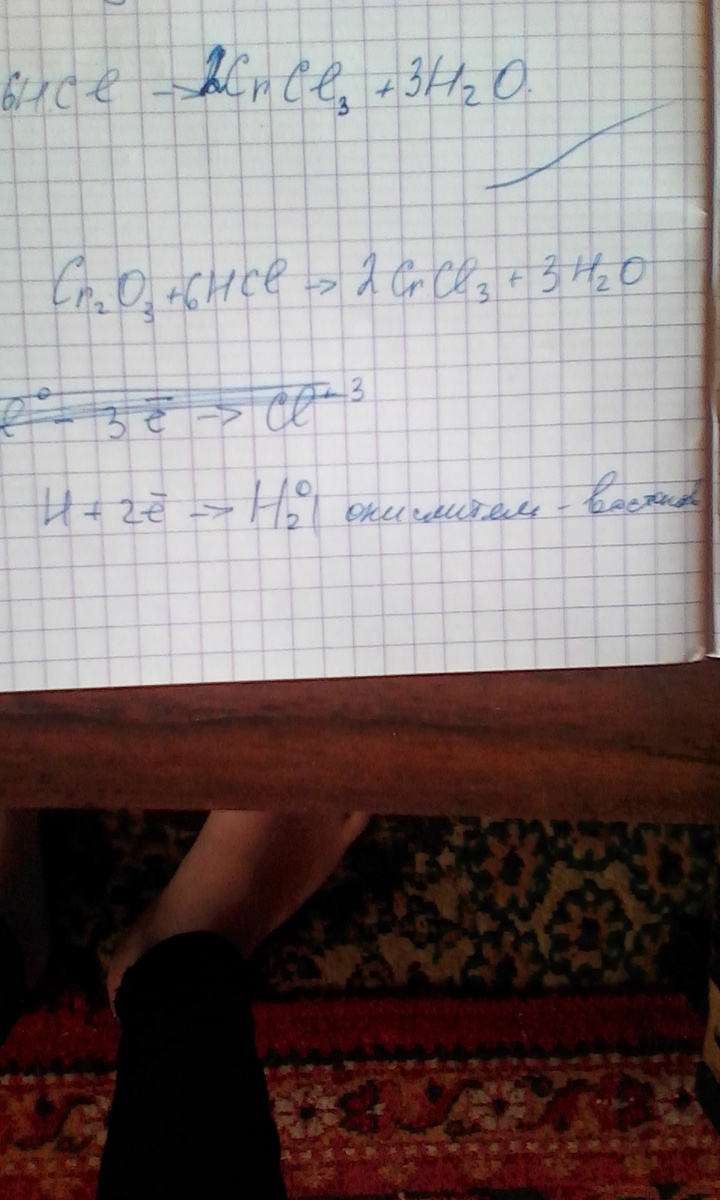 6HCl → 2CrCl₃ + 3H₂O.
Cr₂O₃ + 6HCl → 2CrCl₃ + 3H₂O
l⁰ - 3ē → Cl⁻³
H + 2ē → H₂⁰| окислитель -